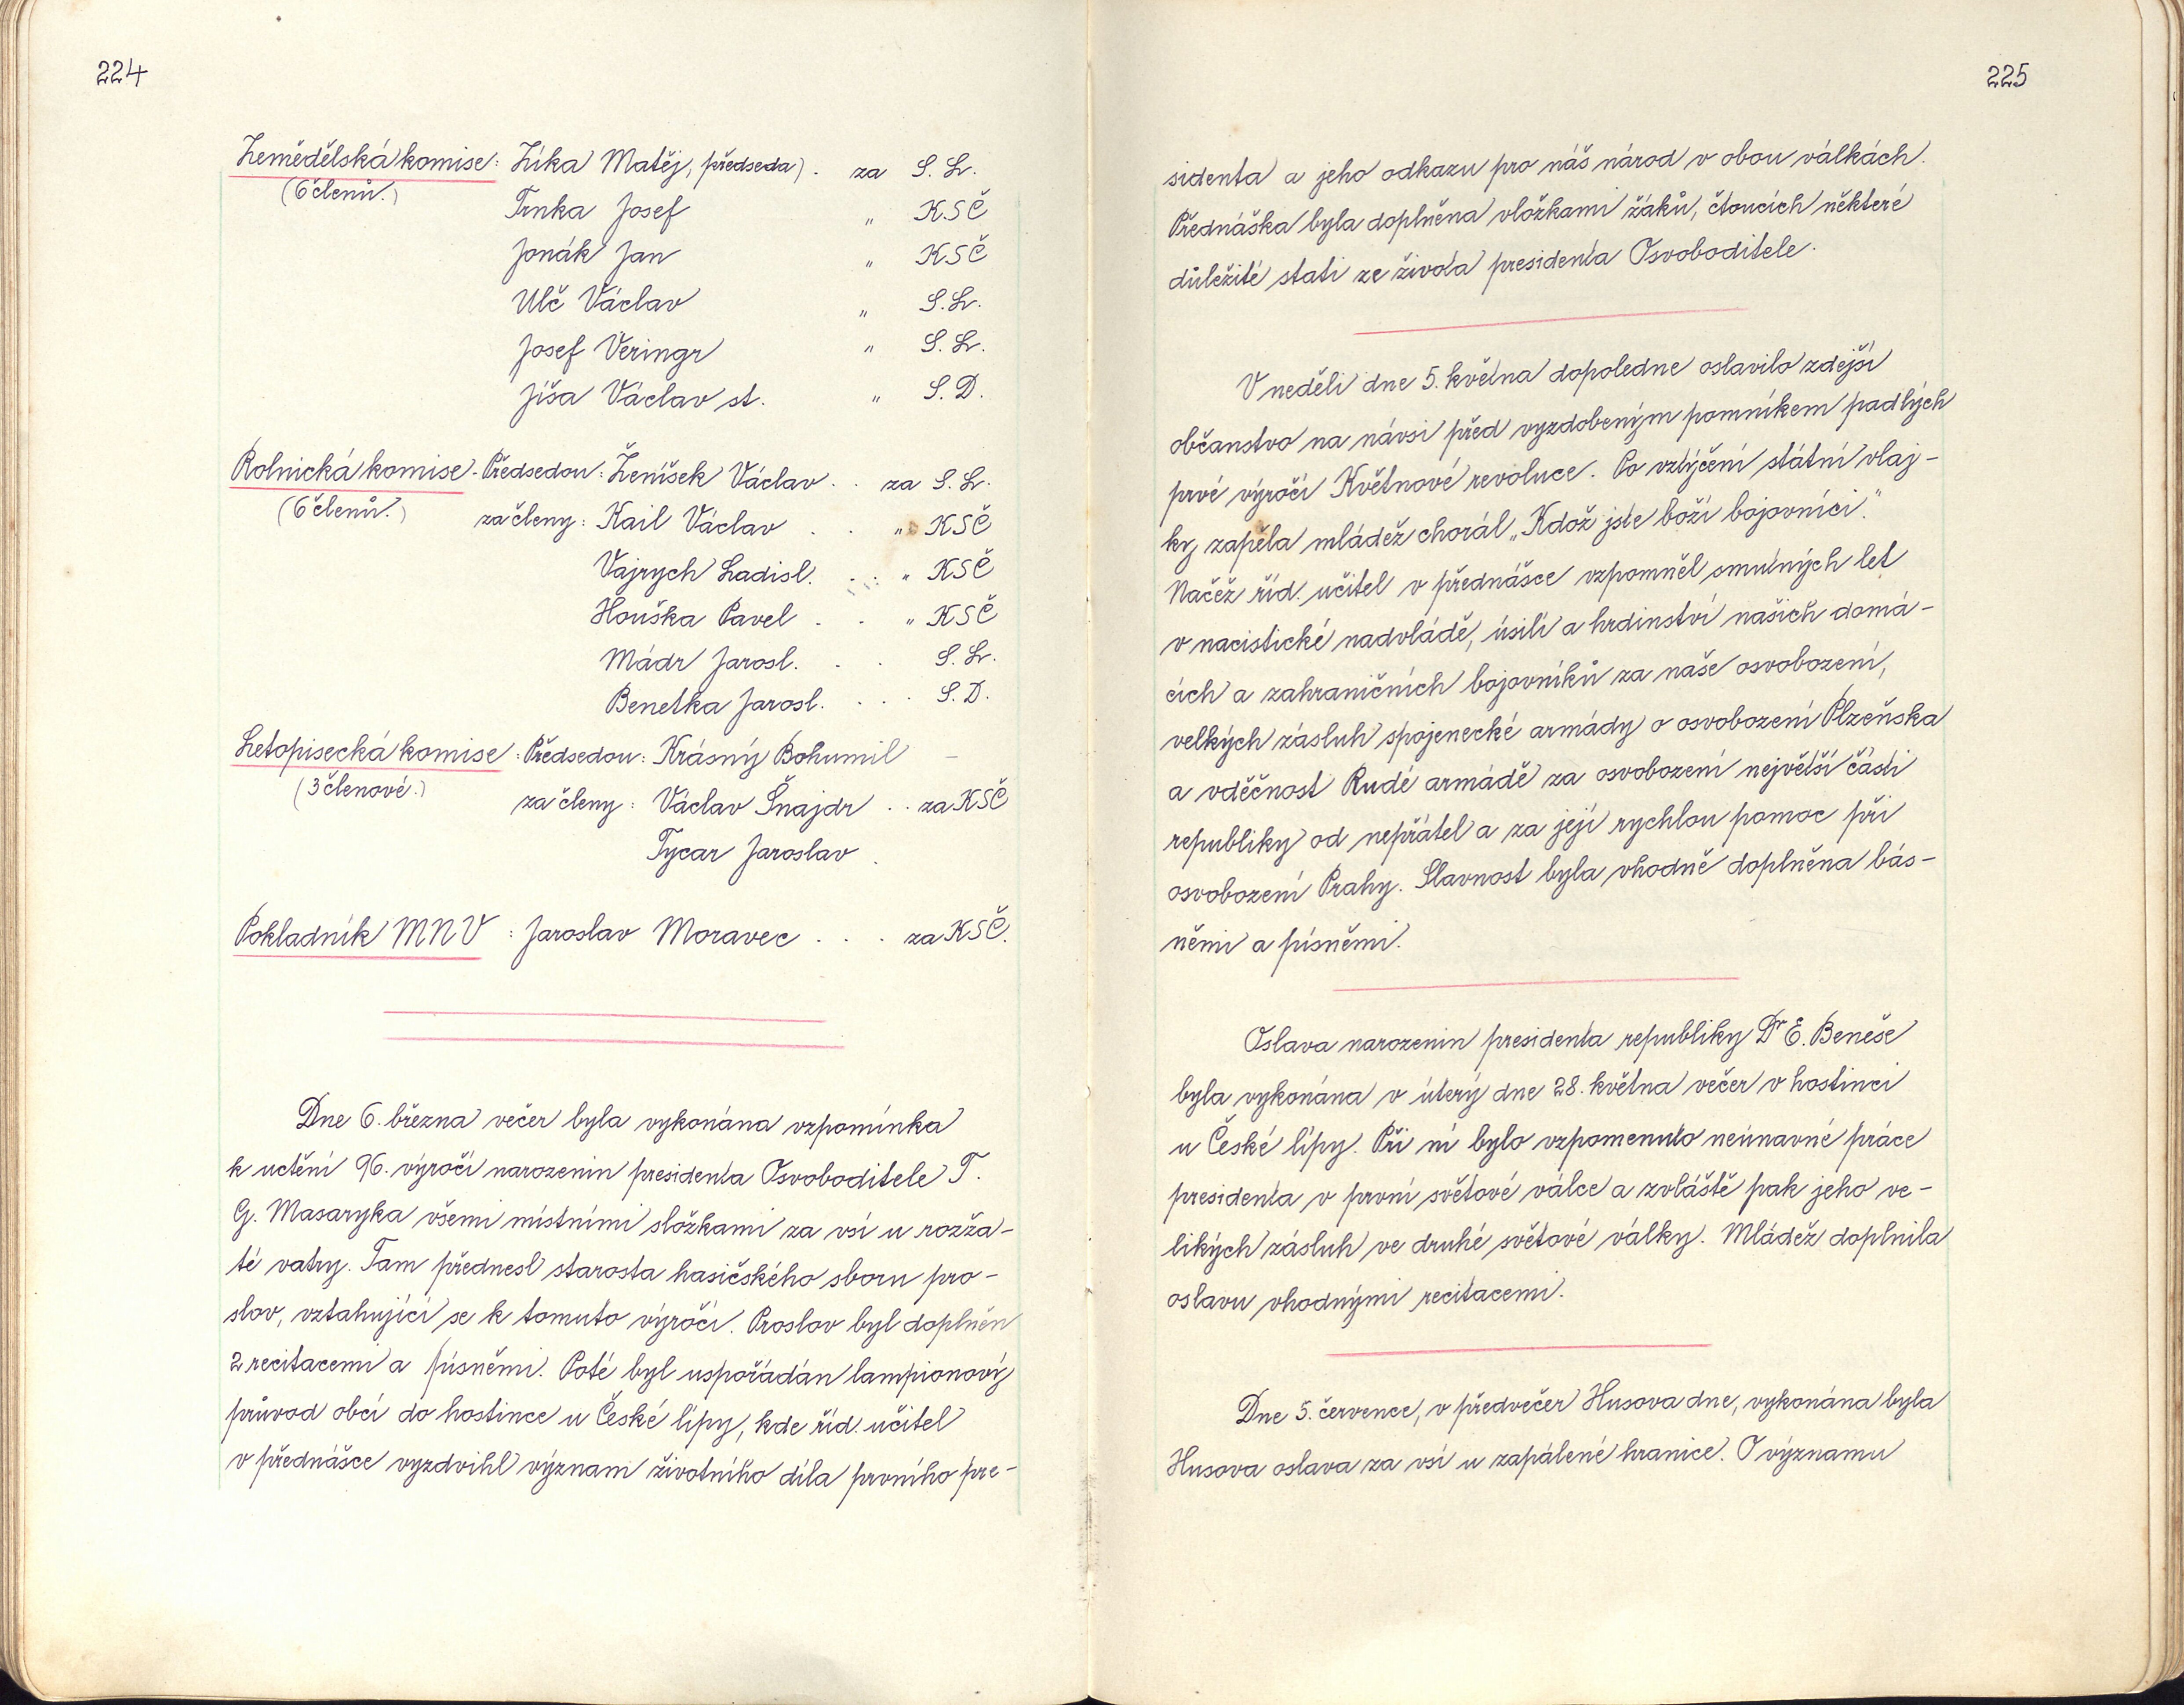 224
Zemědělská komise: Zíka Matěj, (předseda) . za S. L.
(6 členů.)
Trnka Josef " KSČ
Jonák Jan " KSČ
Ulč Václav " S. L.
Josef Veringr " S. L.
Jíša Václav st. " S. D.
Rolnická komise - Předsedou: Ženíšek Václav . . za S. L.
(6 členů.) za členy: Kail Václav . . " KSČ
Vajrych Ladisl. . . " KSČ
Houška Pavel . . " KSČ
Mádr Jarosl. . . S. L.
Benetka Jarosl. . . . S. D.
Letopisecká komise: Předsedou: Krásný Bohumil –
(3 členové.) za členy: Václav Šnajdr . . za KSČ
Tycar Jaroslav .
Pokladník MNV : Jaroslav Moravec . . . za KSČ.
Dne 6. března večer byla vykonána vzpomínka
k uctění 96. výročí narozenin presidenta Osvoboditele T.
G. Masaryka všemi místními složkami za vsí u rozža-
té vatry. Tam přednesl starosta hasičského sboru pro-
slov, vztahující se k tomuto výročí. Proslov byl doplněn
2 recitacemi a písněmi. Poté byl uspořádán lampionový
průvod obcí do hostince u České lípy, kde říd. učitel
v přednášce vyzdvihl význam životního díla prvního pre-
225
sidenta a jeho odkazu pro náš národ v obou válkách.
Přednáška byla doplněna vložkami žáků, čtoucích některé
důležité stati ze života presidenta Osvoboditele.
V neděli dne 5. května dopoledne oslavilo zdejší
občanstvo na návsi před vyzdobeným pomníkem padlých
prvé výročí Květnové revoluce. Po vztýčení státní vlaj-
ky zapěla mládež chorál „Kdož jste boží bojovníci."
Načež říd. učitel v přednášce vzpomněl smutných let
v nacistické nadvládě, úsilí a hrdinství našich domá-
cích a zahraničních bojovníků za naše osvobození,
velkých zásluh spojenecké armády o osvobození Plzeňska
a vděčnost Rudé armádě za osvobození největší části
republiky od nepřátel a za její rychlou pomoc při
osvobození Prahy. Slavnost byla vhodně doplněna bás-
němi a písněmi.
Oslava narozenin presidenta republiky Dr E. Beneše
byla vykonána v úterý dne 28. května večer v hostinci
u České lípy. Při ní bylo vzpomenuto neúnavné práce
presidenta v první světové válce a zvláště pak jeho ve-
likých zásluh ve druhé světové války. Mládež doplnila
oslavu vhodnými recitacemi.
Dne 5. července, v předvečer Husova dne, vykonána byla
Husova oslava za vsí u zapálené hranice. O významu